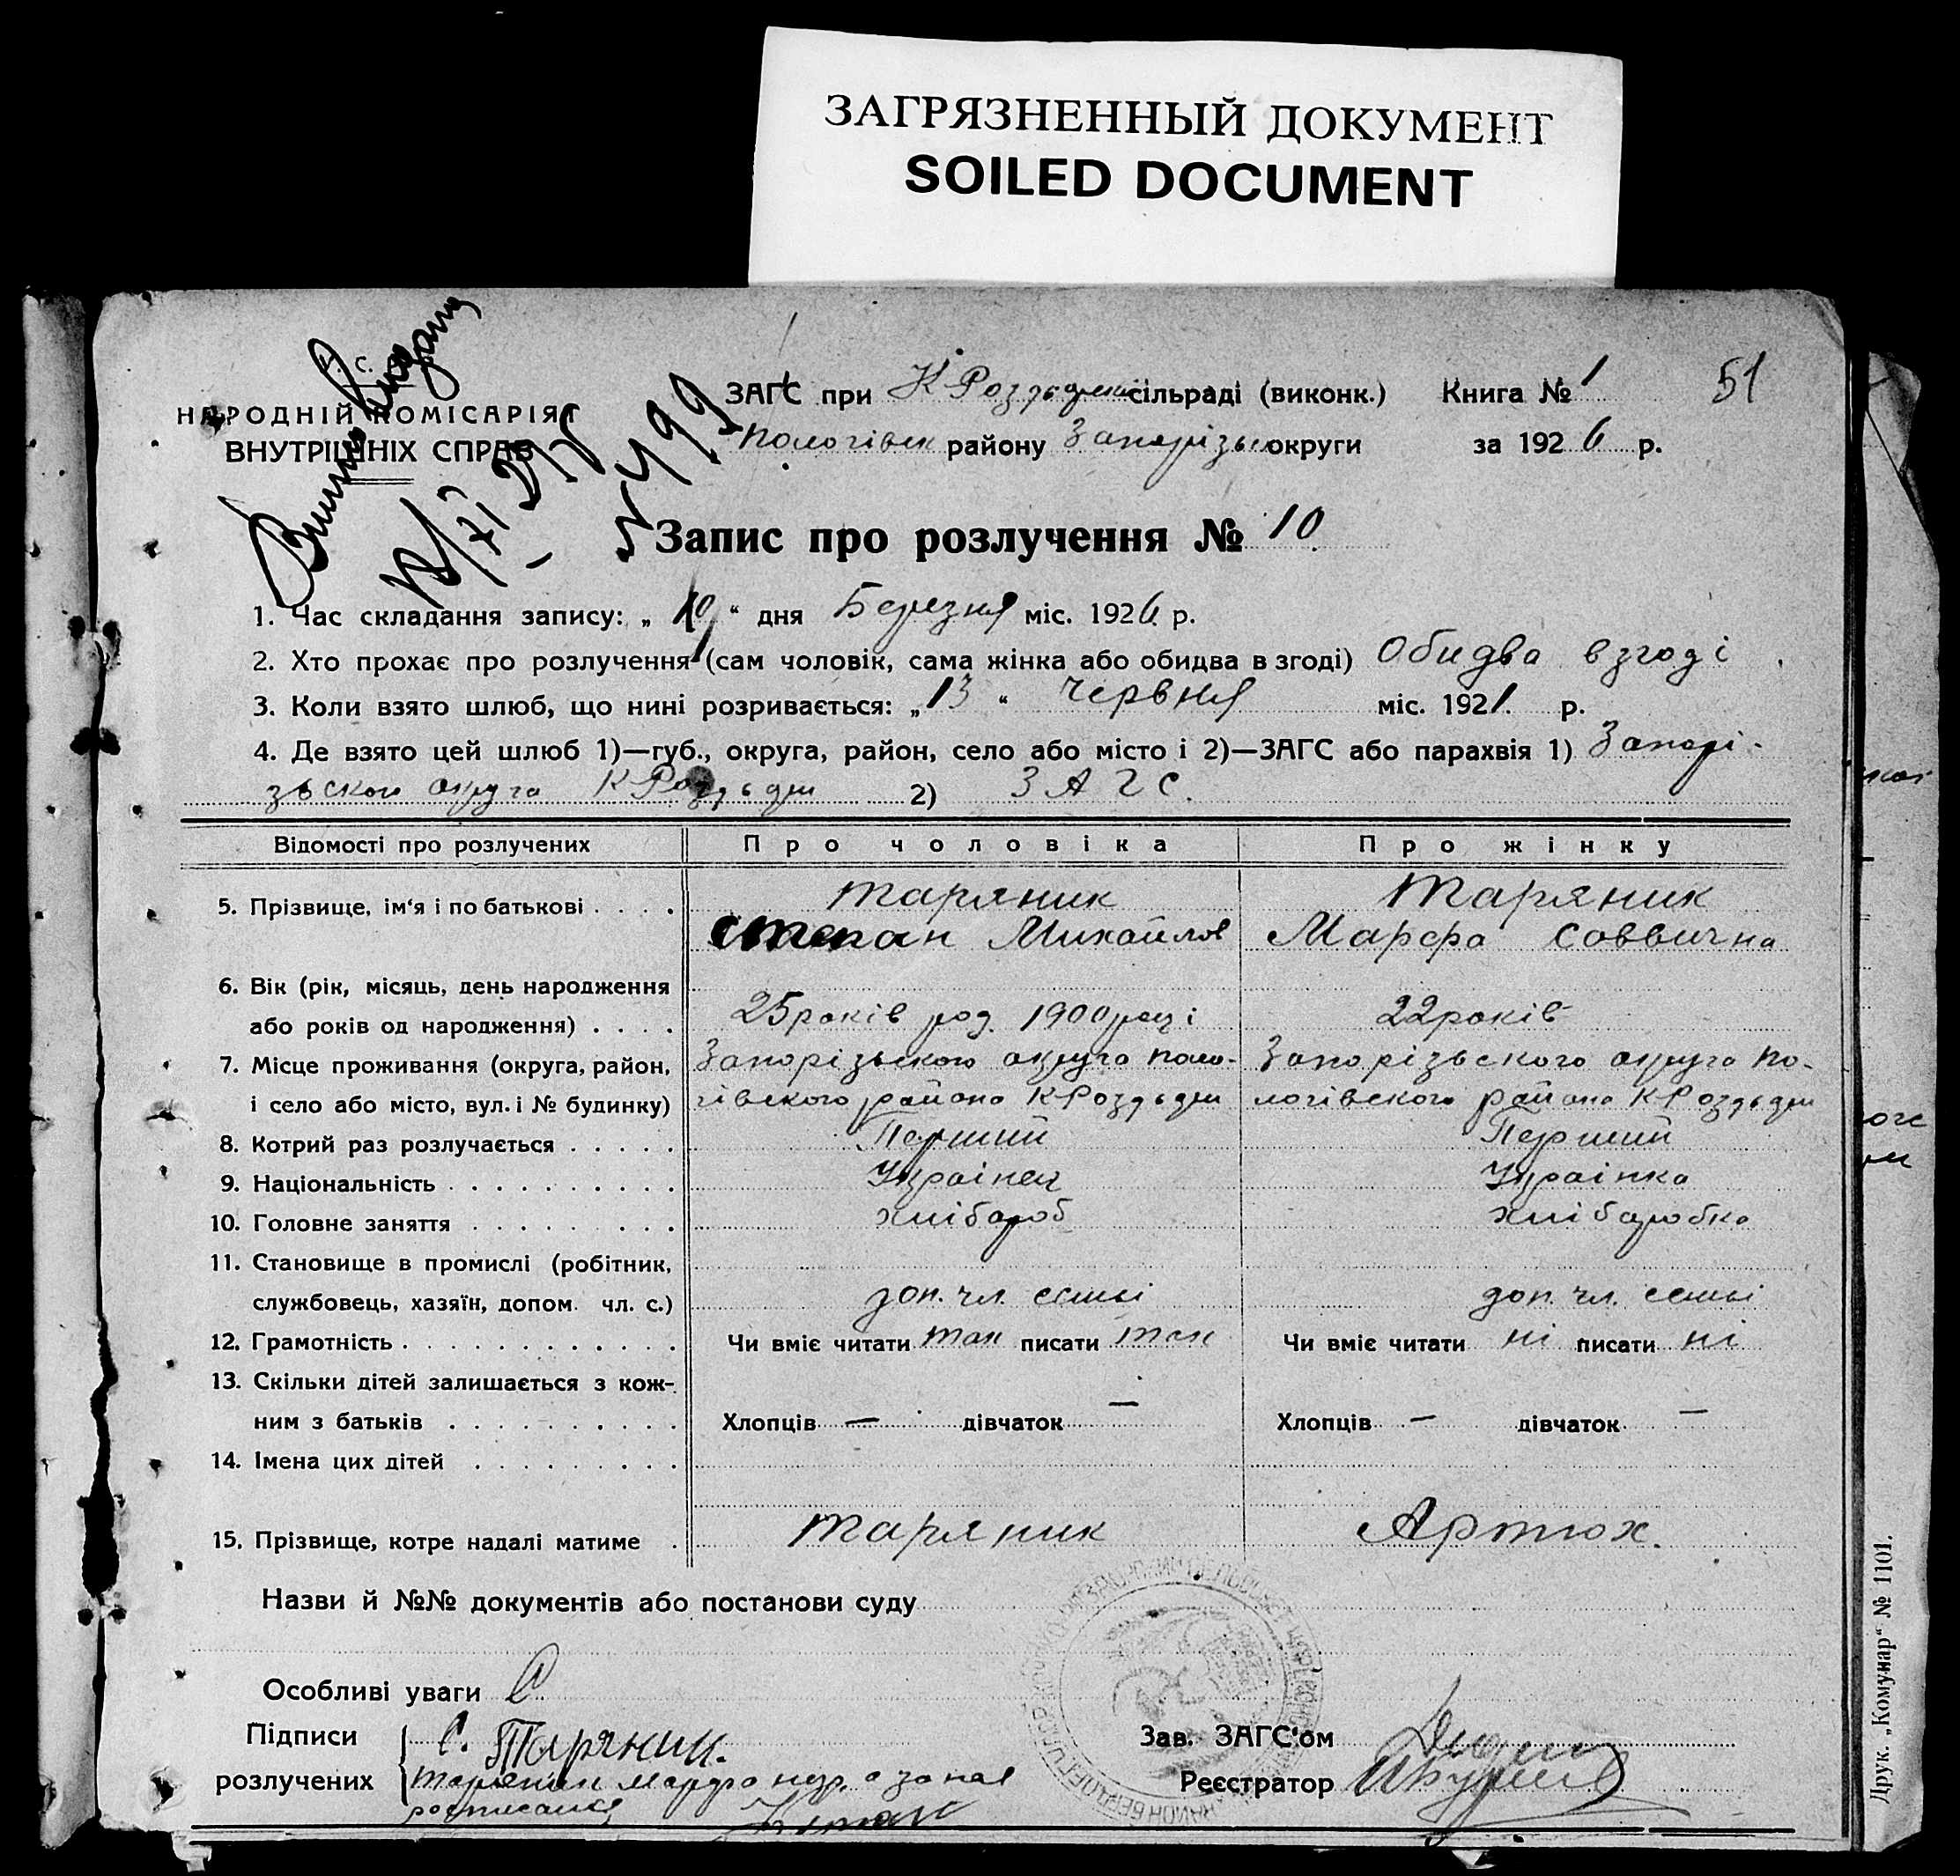 ЗАГРЯЗНЕННЫЙ ДОКУМЕНТ
SOILED DOCUMENT
НАРОДНІЙ КОМІСАРІЯТ
ВНУТРІШНІХ СПРАВ
N 499
ЗАГС при К Роздорськ сільраді (виконк.) Книга № 1 51
Пологівськ району Запорізьк округи за 1926 р.
Запис про розлучення № 10
1. Час складання запису: „ 10 “ дня Березня міс. 1926 р.
2. Хто прохає про розлучення (сам чоловік, сама жінка або обидва в згоді) Обидва взгоді
3. Коли взято шлюб, що нині розривається: „ 13 “ Червня міс. 1921 р.
4. Де взято цей шлюб 1)—губ., округа, район, село або місто і 2)—ЗАГС або парахвія 1) Запорі-
зького округа 2) ЗАГС.
Відомості про розлучених Про чоловіка Про жінку
5. Прізвище, ім‘я і по батькові Таряник Таряник
Степан Михайлов Марфа Саввична
6. Вік (рік, місяць, день народження
або років од народження) 25 років род 1900 році 22 років
7. Місце проживання (округа, район, Запорізького округа Поло- Запорізького округа По-
і село або місто, вул. і № будинку) гівского района логівского района
8. Котрий раз розлучається Перший Перший
9. Національність Украінец Украінка
10. Головне заняття хлібароб хлібаробка
11. Становище в промислі (робітник,
службовець, хазяїн, допом. чл. с.) доп. чл. семьі доп. чл. семьі
12. Грамотність Чи вміє читати так писати так Чи вміє читати ні писати ні
13. Скільки дітей залишається з кож-
ним з батьків Хлопців — дівчаток — Хлопців — дівчаток —
14. Імена цих дітей
15. Прізвище, котре надалі матиме Таряник Артюх.
Назви й №№ документів або постанови суду
Особливі уваги
Підписи С. Таряник. Зав. ЗАГС‘ом
розлучених Таряник Марфа Реєстратор
Друк. „Комунар“ № 1101.